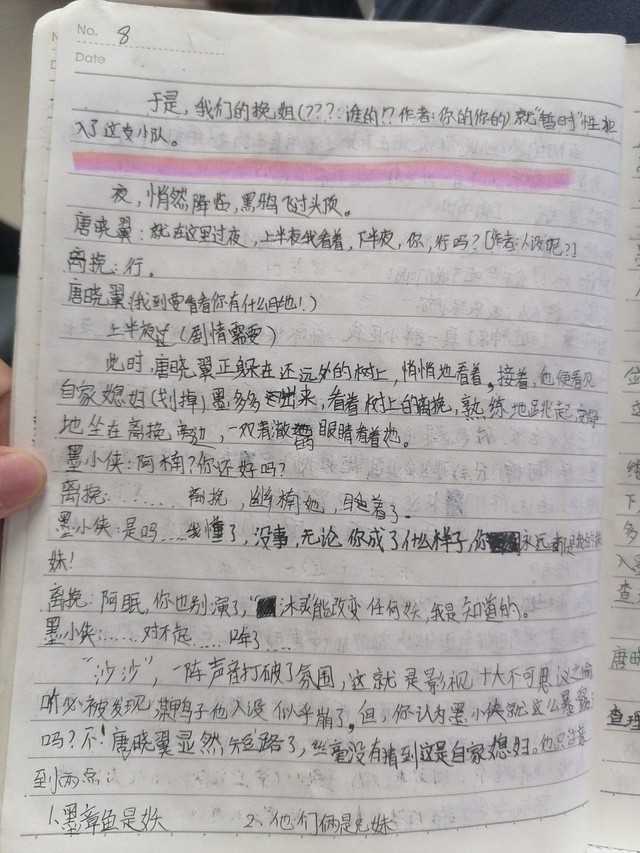 No. 8
Date
于是，我们的挽姐(???:谁的!? 作者:你的你的)就"暂时"性加
入了这支小队。
夜，悄然降临，黑鸦飞过头顶。
唐晓翼:就在这里过夜，上半夜我看着，下半夜，你，行吗?[作者:人设呢?]
离挽:行。
唐晓翼(我到要看看你有什么目地!)
上半夜过(剧情需要)
此时，唐晓翼正躲在还远处的树上，悄悄地看着。接着，他便看见
自家媳妇(划掉)墨多多出来，看着树上的离挽，熟练地跳起
地坐在离挽旁边，一双清澈眼睛看着她。
墨小侠:阿楠?你还好吗?
离挽:?......离挽，幽楠她，睡着了。
墨小侠:是吗...我懂了，没事，无论你成了什么样子，你永远都是我的
妹!
离挽:阿眠，你也别演了，冰灵能改变任何妖，我是知道的。
墨小侠:......对不起......
"沙沙"，一阵声音打破了氛围，这就是影视十大不可思议之偷
听必被发现，某鸭子他人设似乎崩了。但，你认为墨小侠就这么暴露
吗?不!唐晓翼显然短路了，丝毫没有猜到这是自家媳妇。他只注意
到两点:
1、墨章鱼是妖 2、他们俩是兄妹
查
唐晓
查理